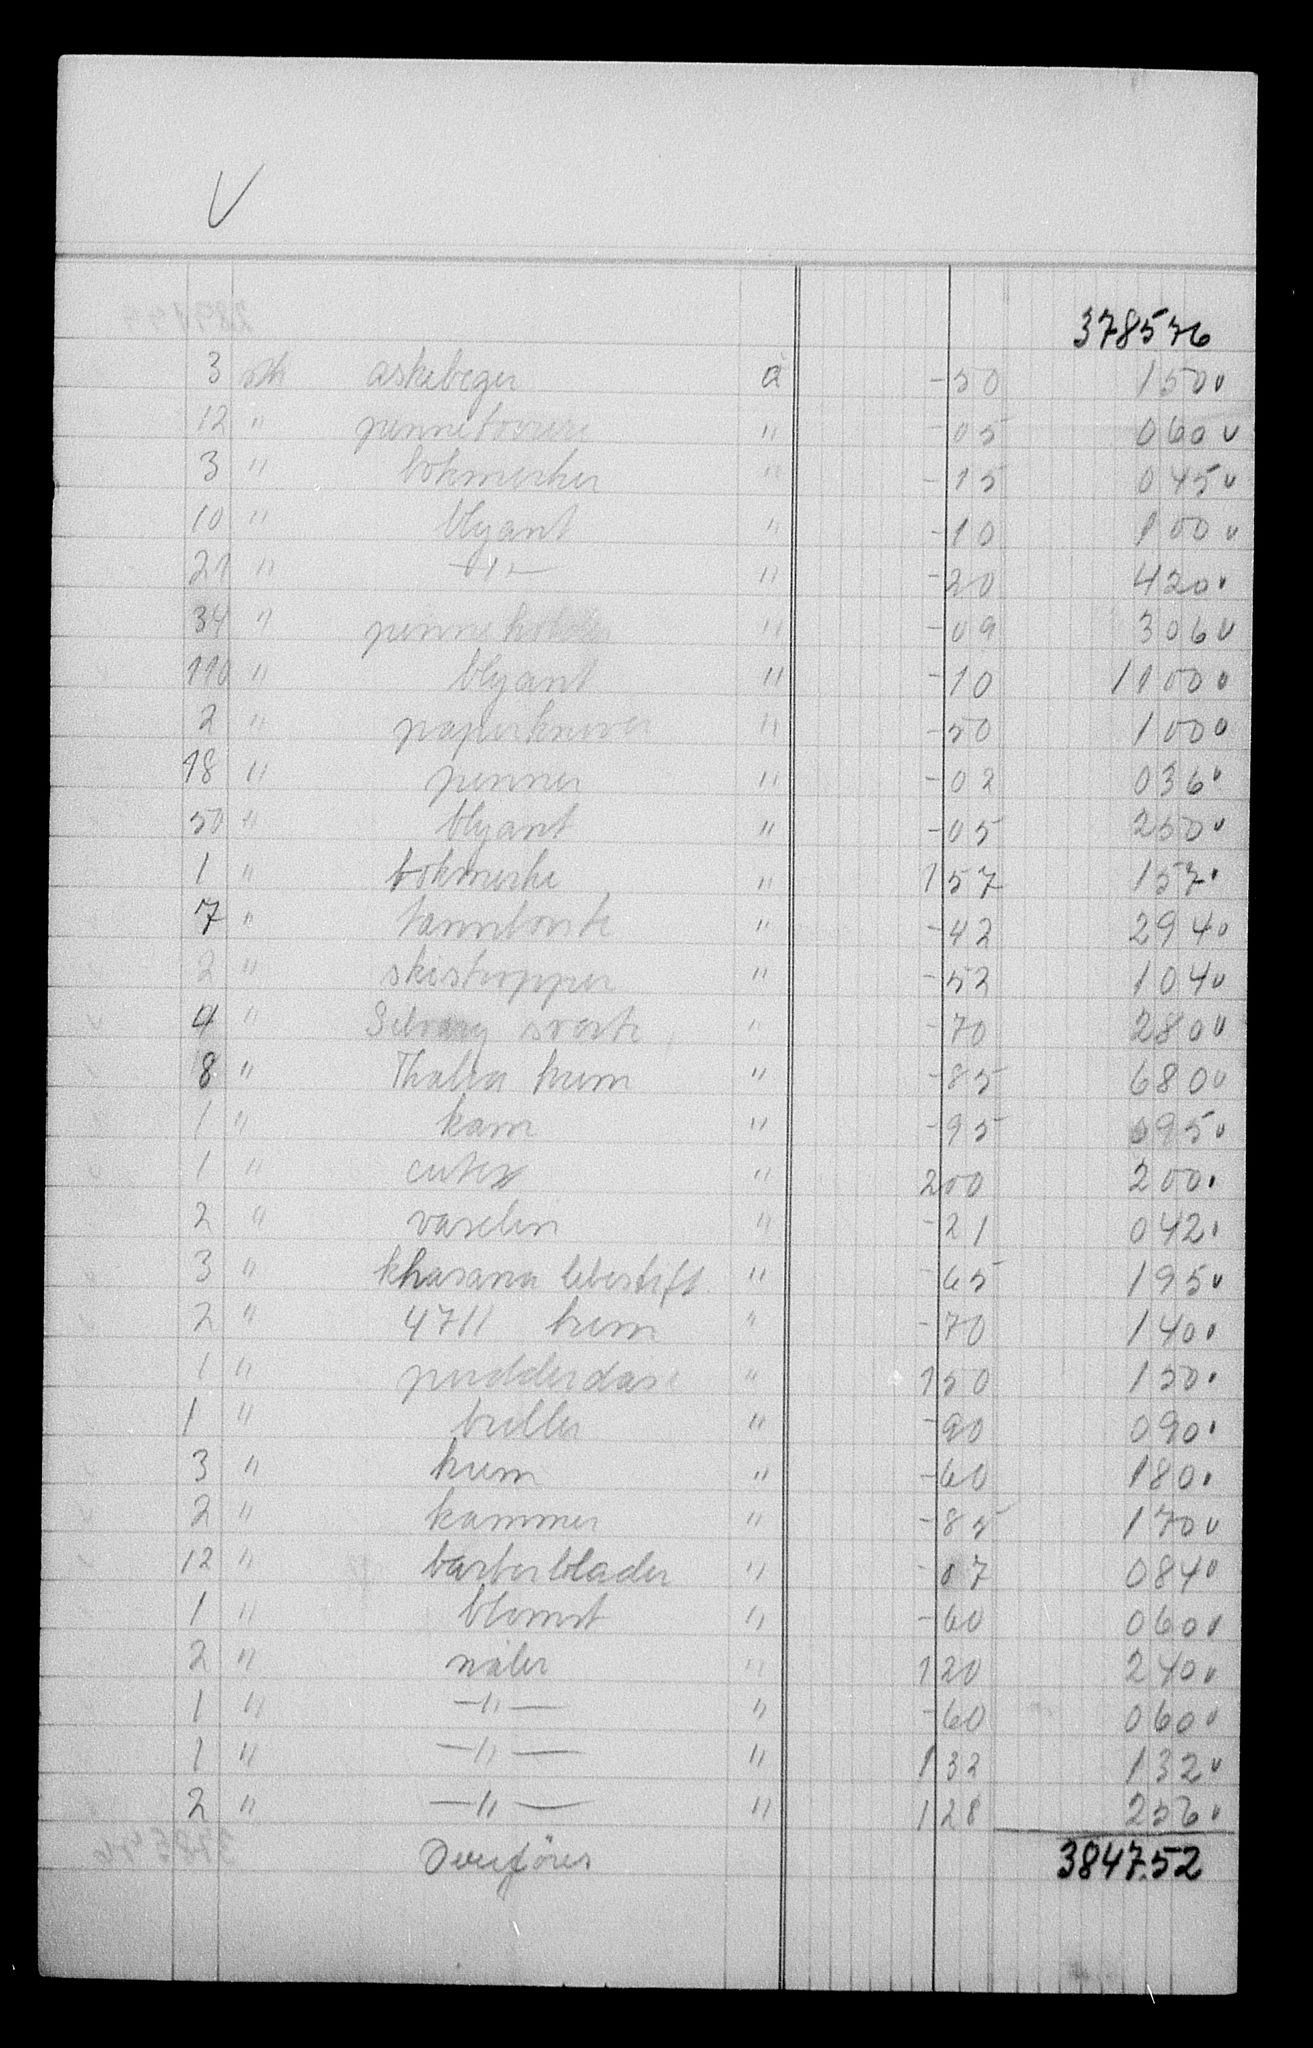 V
378576
3 stk askebeger à -50 150
12 " penneboxer " -05 060
3 " bokmerker " -15 045
10 " blyant " -10 100
21 " —"— " -20 420
34 " penneholder " -09 306
110 " blyant " -10 1100
2 " papirkniver " -50 100
18 " penner " -02 036
50 " blyant " -05 250
1 " bokmerke " 157 157
7 " tannbörste " -42 294
2 " skistropper " -52 104
4 " sverte " -70 280
8 " Thalia krem " -85 680
1 " kam " -95 095
1 " cutex " 200 200
2 " vaselin " -21 042
3 " Khasana lebestift " -65 195
2 " 4711 krem " -70 140
1 " pudderdåse " 150 150
1 " briller " -90 090
3 " krem " -60 180
2 " kammer " -85 170
12 " barberblader " -07 084
1 " blomst " -60 060
2 " nåler " 120 240
1 " —"— " -60 060
1 " —"— " 132 132
2 " —"— " 128 256
Overföres 3847.52